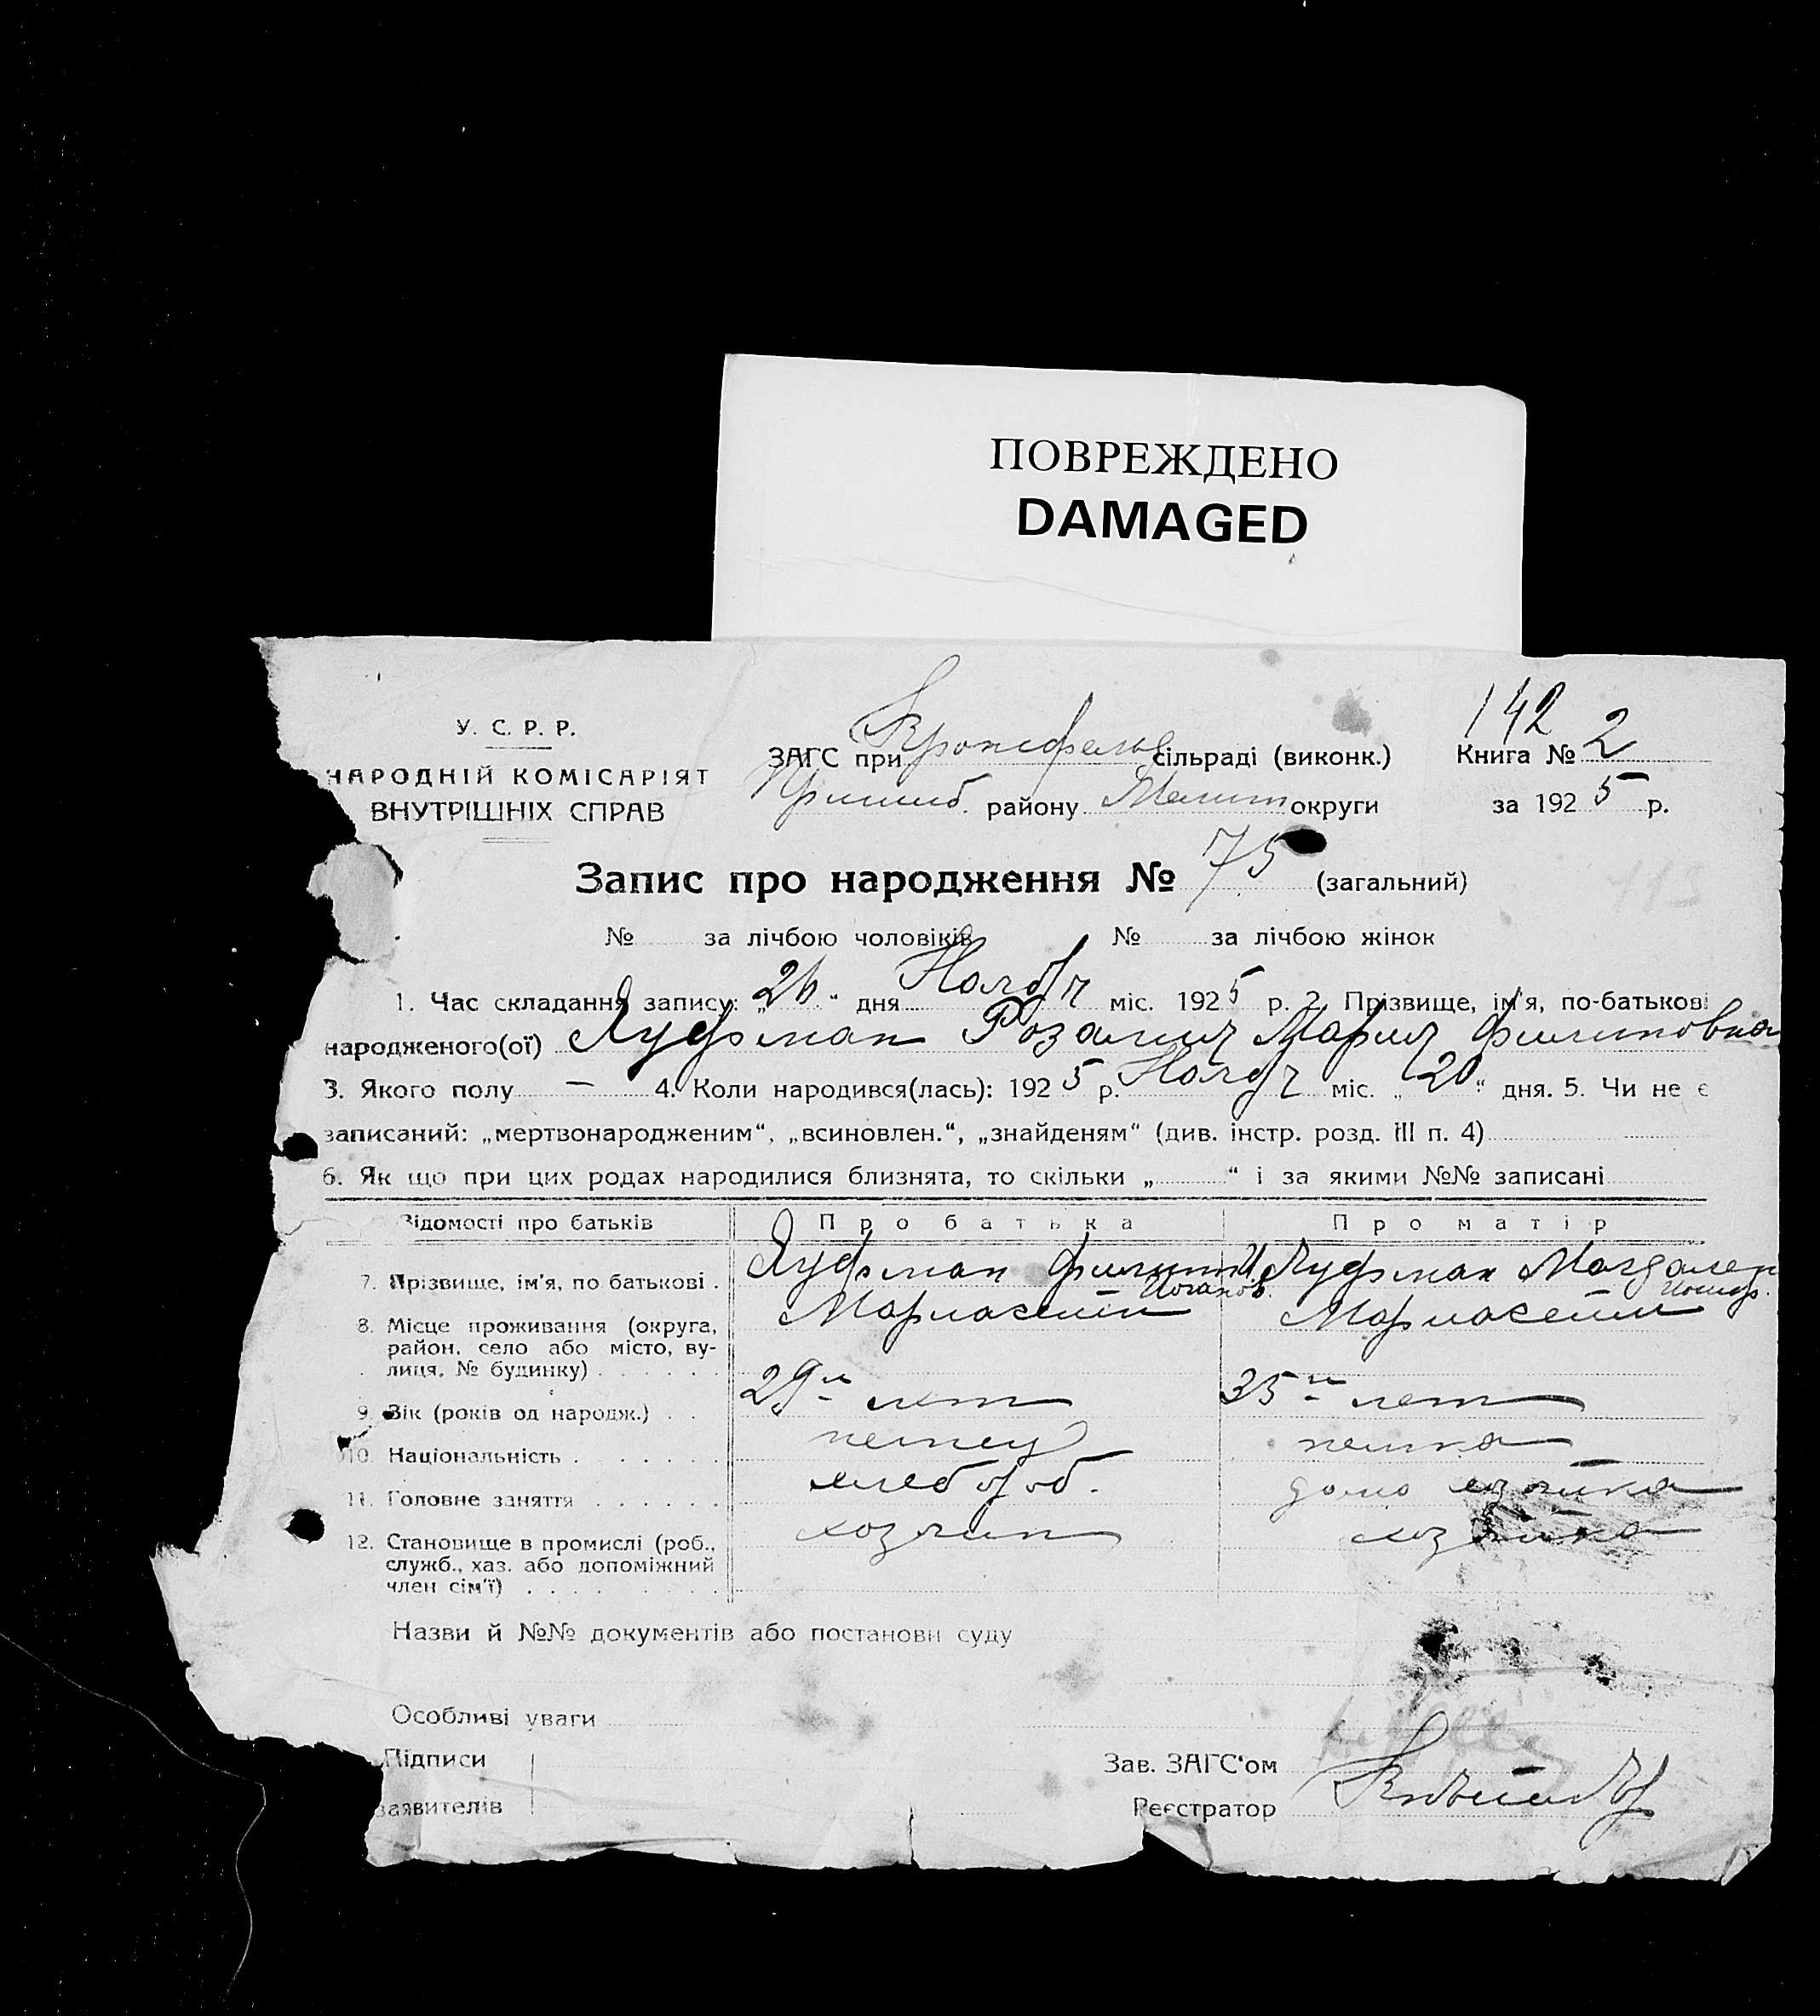 ПОВРЕЖДЕНО
DAMAGED
142
У. С. Р. Р.
НАРОДНІЙ КОМІСАРІЯТ
ВНУТРІШНІХ СПРАВ
ЗАГС при Кронсфельд сільраді (виконк.) Книга № 2
Пришиб. району Мелит округи за 1925 р.
Запис про народження № 75 (загальний)
№ за лічбою чоловіків № за лічбою жінок
1. Час складання запису: „26“ дня Ноября міс. 1925 р. 2. Прізвище, ім'я, по-батькові
народженого(ої) Гуфман Розалия Мария Филиповна
3. Якого полу — 4. Коли народився(лась): 1925 р. Ноября міс. „20“ дня. 5. Чи не є
записаний: „мертвонародженим“, „всиновлен.“, „знайденям“ (див. інстр. розд. III п. 4)
6. Як що при цих родах народилися близнята, то скільки „ “ і за якими №№ записані
Відомості про батьків Про батька Про матір
7. Прізвище, ім'я, по батькові . Гуфман Филипп Иоганов. Гуфман Магдален Иосиф.
8. Місце проживання (округа, Мариагейм Мариагейм
район, село або місто, ву-
лиця, № будинку)
9. Вік (років од народж.) 29 и лет 35 и лет
10. Національність немец немка
11. Головне заняття хлебороб. домохозяйка
12. Становище в промислі (роб., хозяин хозяйка
служб., хаз. або допоміжний
член сім'ї)
Назви й №№ документів або постанови суду
Особливі уваги
Підписи
заявителів
Зав. ЗАГС'ом
Реєстратор